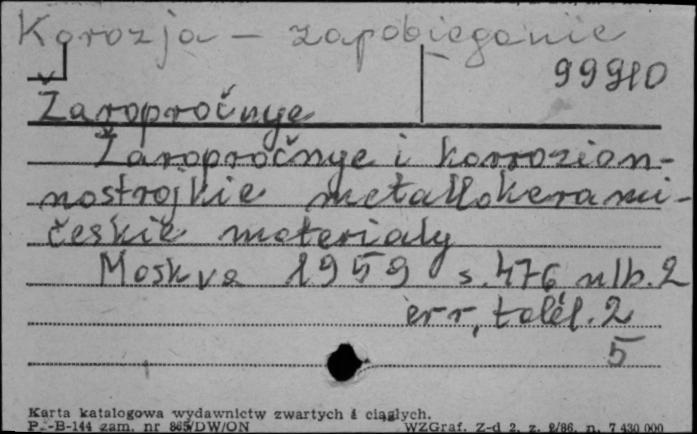 Korozja - zapobieganie
99910
Žaropročnye
Žaropročnye i korrozion-
nostrojkie metallokerami-
českie materialy
Moskva 1959 s. 476 nlb. 2
err, tabl. 2
5
Karta katalogowa wydawnictw zwartych i ciągłych.
P.-B-144 zam. nr 865/DW/ON WZGraf. Z-d 2, z. 2/86, n. 7 430 000